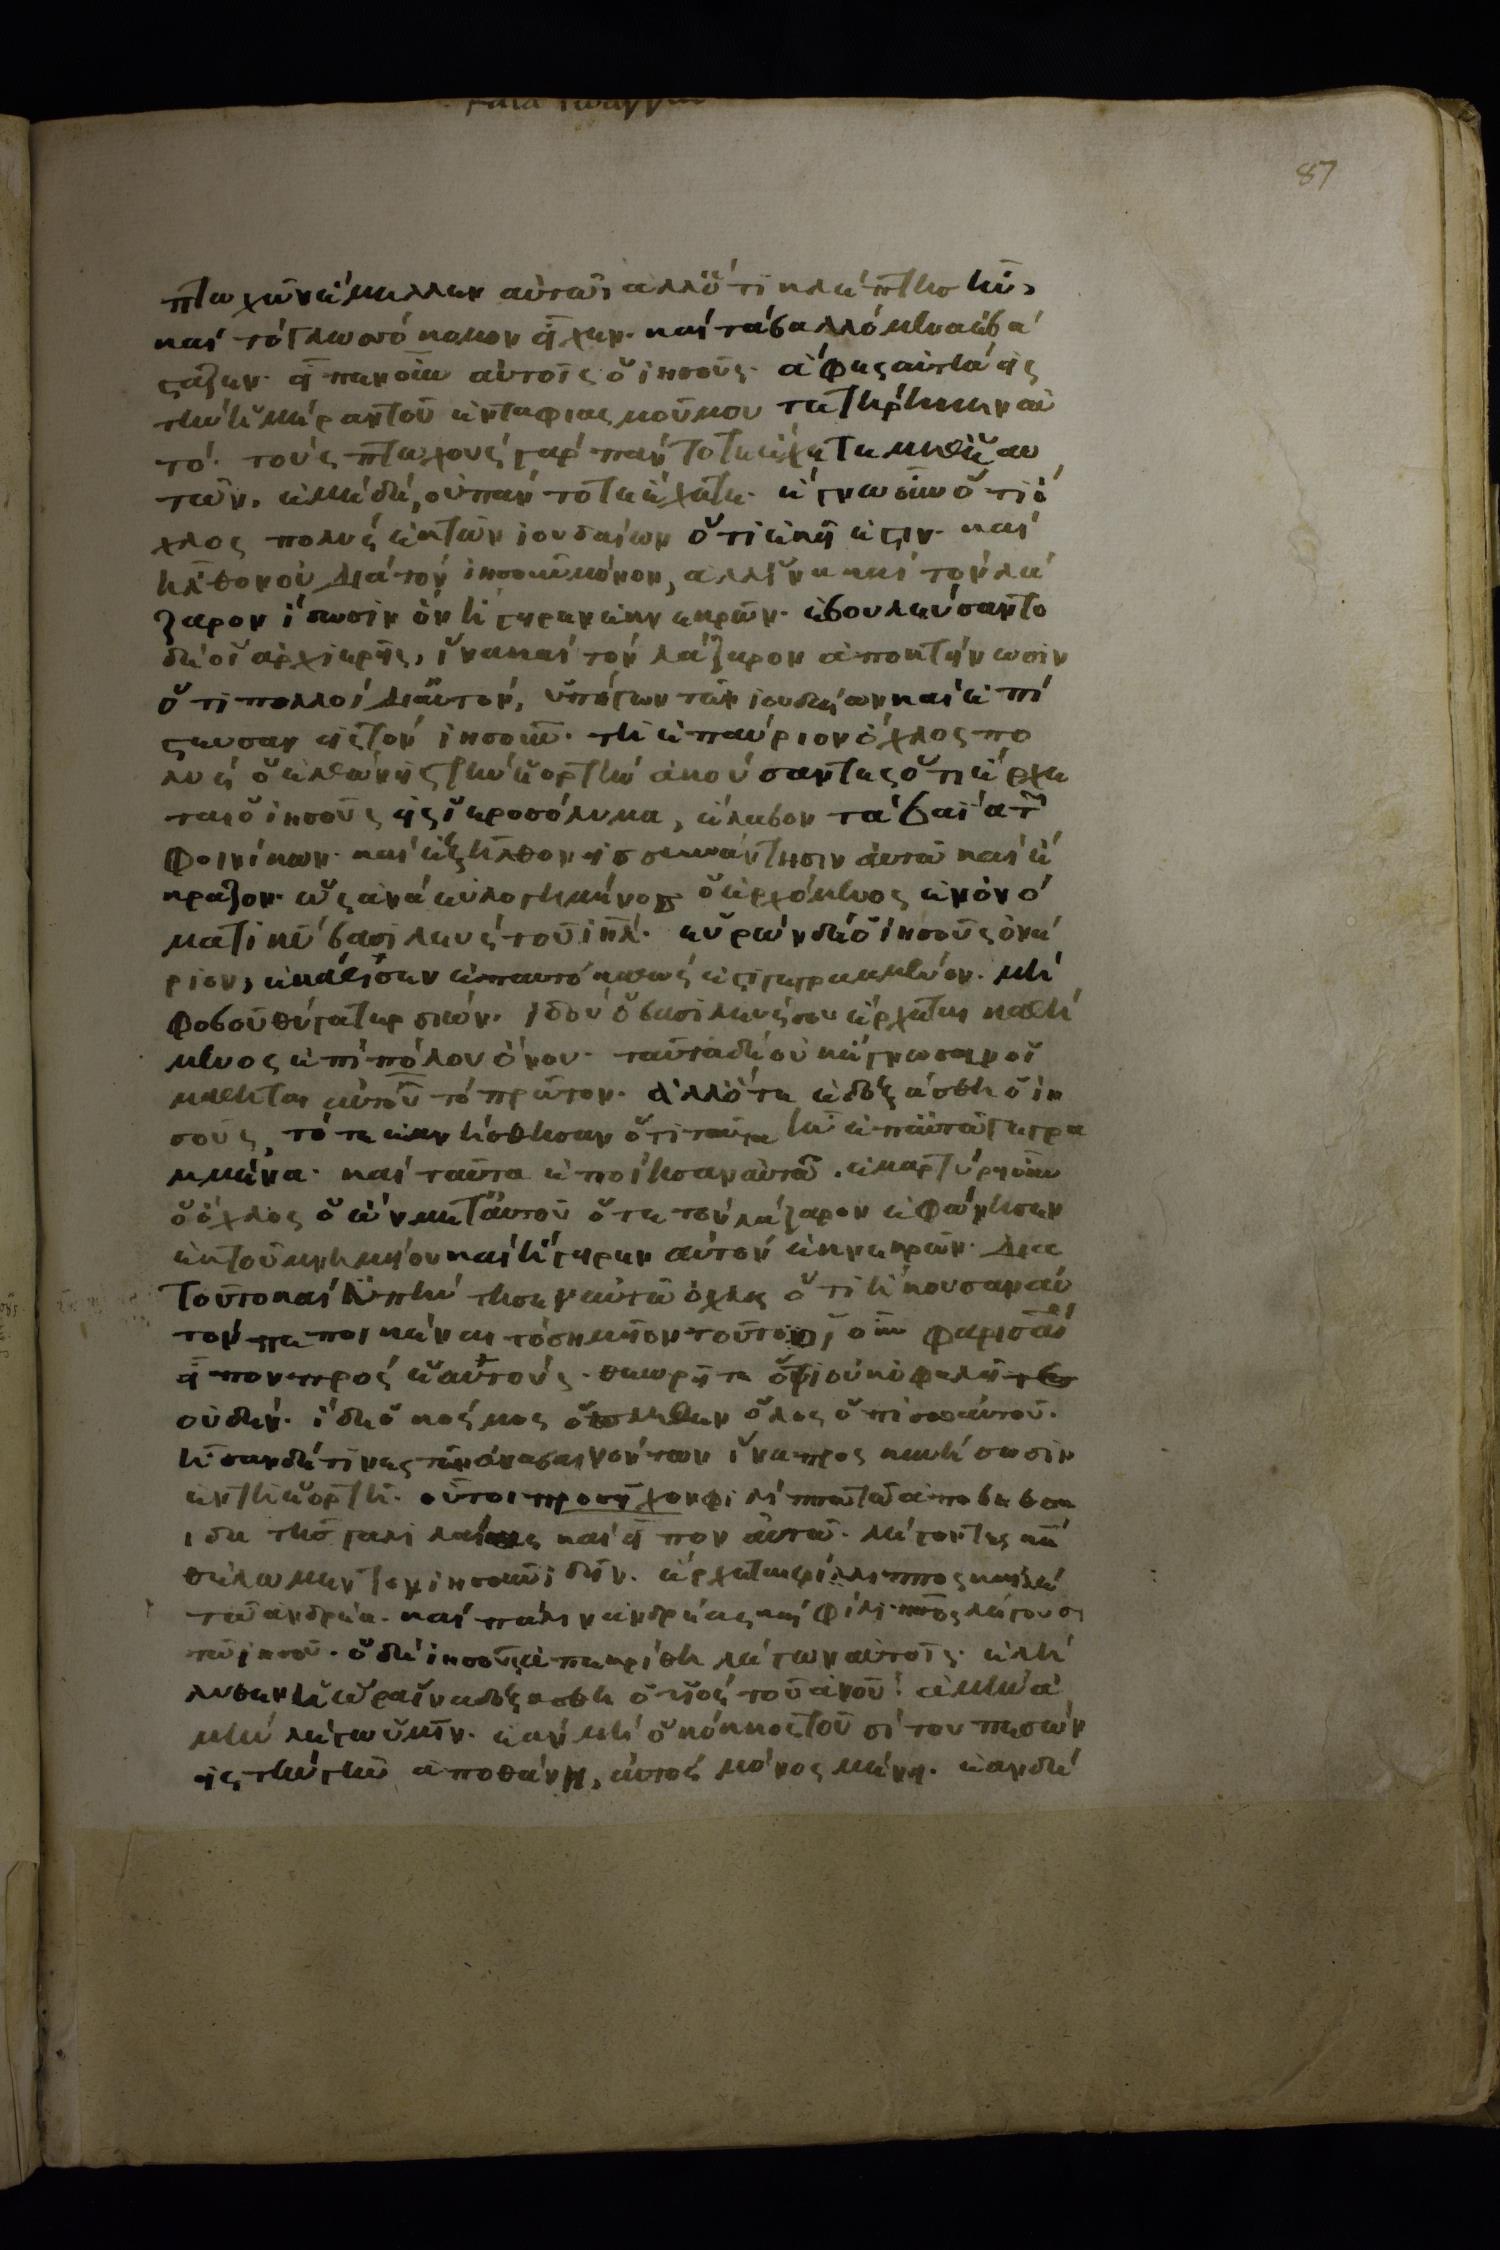 κατα ιωαννην
87
πτωχῶν ἔμελλεν αὐτῶ ἀλλ' ὅτι κλέπτης ἦν,
καὶ τὸ γλωσσόκομον εἶχεν. καὶ τὰ βαλλόμενα ἐβά
σταζεν. εἶπεν οὖν αὐτοῖς ὁ ἰησοῦς. ἄφες αὐτὴν εἰς
τὴν ἡμέραν τοῦ ἐνταφιασμοῦ μου τετήρηκεν αὐ
τό. τοὺς πτωχοὺς γὰρ πάντοτε ἔχετε μεθ' ἑαυ
τῶν, ἐμὲ δὲ, οὐ πάντοτε ἔχετε. ἔγνω οὖν ὅτι ὄ
χλος πολὺς ἐκ τῶν ἰουδαίων ὅτι ἐκεῖ ἐστιν. καὶ
ἦλθον οὐ διὰ τὸν ἰησοῦν μόνον, ἀλλ' ἵνα καὶ τὸν λά
ζαρον ἴδωσιν ὃν ἤγειρεν ἐκ νεκρῶν. ἐβουλεύσαντο
δὲ οἱ ἀρχιερεῖς, ἵνα καὶ τὸν λάζαρον ἀποκτείνωσιν
ὅτι πολλοὶ δι' αὐτὸν, ὑπῆγων τῶν ἰουδαίων καὶ ἐπί
στευσαν εἰς τὸν ἰησοῦν. τῆ ἐπαύριον ὄχλος πο
λὺς ὁ ἐλθὼν εἰς τὴν ἑορτὴν ἀκούσαντες ὅτι ἔρχε
ται ὁ ἰησοῦς εἰς ἱεροσόλυμα, ἔλαβον τὰ βαΐα τῶν
φοινίκων. καὶ ἐξῆλθον εἰς συνάντησιν αὐτῶ καὶ ἔ
κραζον. ὡσανὰ εὐλογημένος ὁ ἐρχόμενος ἐν ὀνό
ματι κυ βασιλεὺς τοῦ ιηλ. εὑρὼν δὲ ὁ ἰησοῦς ὀνά
ριον, ἐκάθισεν ἐπ' αὐτὸ καθώς ἐστι γεγραμμένον. μὴ
φοβοῦ θύγατερ σιών. ἰδοὺ ὁ βασιλεύς σου ἔρχεται καθή
μενος ἐπὶ πόλον ὄνου. ταῦτα δὲ οὐκ ἔγνωσαν οἱ
μαθηταὶ αὐτοῦ τὸ πρῶτον. ἀλλ' ὅτε ἐδοξάσθη ὁ ἰη
σοῦς, τότε ἐμνήσθησαν ὅτι ταῦτα ἦν ἐπ' αὐτῶ γεγρα
μμένα. καὶ ταῦτα ἐποίησαν αὐτῶ. ἐμαρτύρει οὖν
ὁ ὄχλος ὁ ὢν μετ' αὐτοῦ ὅτε τὸν λάζαρον ἐφώνησεν
ἐκ τοῦ μνημείου καὶ ἤγειρεν αὐτὸν ἐκ νεκρῶν. διὰ
τοῦτο καὶ ὑπήντησεν αὐτῶ ὄχλος ὅτι ἤκουσαν αὐ
τὸν πεποικέναι τὸ σημεῖον τοῦτο, οἱ οὖν φαρισαῖοι
εἶπον πρὸς ἑαυτούς. θεωρεῖτε ὅτι οὐκ ὀφελεῖτε
οὐδέν. ἴδε ὁ κόσμος ὅλος ὀπίσω αὐτοῦ.
ἦσαν δέ τινες τῶν ἀναβαινόντων ἵνα προσκυνήσωσιν
ἐν τῆ ἑορτῆ. οὗτοι προσῆλθον φιλίππω τῶ ἀπὸ βηθσα
ιδὰ τῆς γαλιλαίας καὶ εἶπον αὐτῶ. λέγοντες κε
θέλωμεν τὸν ἰησοῦν ἰδεῖν. ἔρχεται φίλιππος καὶ λέγει
τῶ ἀνδρέα. καὶ πάλιν ἀνδρέας καὶ φίλιππος λέγουσι
τῶ ἰησοῦ. ὁ δὲ ἰησοῦς ἀπεκρίθη λέγων αὐτοῖς. ἐλή
λυθεν ἡ ὥρα ἵνα δοξασθῆ ὁ υἱὸς τοῦ ἀνου. ἀμὴν ἀ
μὴν λέγω ὑμῖν. ἐὰν μὴ ὁ κόκκος τοῦ σίτου πεσὼν
εἰς τὴν γῆν ἀποθάνη, αὐτὸς μόνος μένει. ἐὰν δὲ